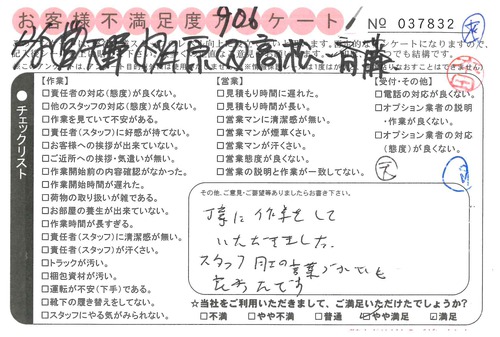 お客様不満足度アンケート
9026
No 037832
チェックリスト
【作業】
□責任者の対応(態度)が良くない。
□他のスタッフの対応(態度)が良くない。
□作業を見ていて不安がある。
□責任者(スタッフ)に好感が持てない。
□お客様への挨拶が出来ていない。
□ご近所への挨拶・気遣いが無い。
□作業開始前の内容確認がなかった。
□作業開始時間が遅れた。
□荷物の取り扱いが雑である。
□お部屋の養生が出来ていない。
□作業時間が長すぎる。
□責任者(スタッフ)に清潔感が無い。
□責任者(スタッフ)が汗くさい。
□トラックが汚い。
□梱包資材が汚い。
□運転が不安(下手)である。
□靴下の履き替えをしてない。
□スタッフにやる気がみられない。
【営業】
□見積もり時間に遅れた。
□見積もり時間が長い。
□営業マンに清潔感が無い。
□営業マンが煙草くさい。
□営業マンが汗くさい。
□営業態度が良くない。
□営業の説明と作業が一致してない。
【受付・その他】
□電話の対応が良くない。
□オプション業者の説明
・作業が良くない。
□オプション業者の対応
(態度)が良くない。
その他、ご意見・ご要望等ありましたらお書き下さい。
丁寧に作業をして
いただきました。
スタッフ同士の言葉づかいも
良かったです
☆当社をご利用いただきまして、ご満足いただけたでしょうか?
□不満 □やや不満 □普通 □やや満足 ☑満足